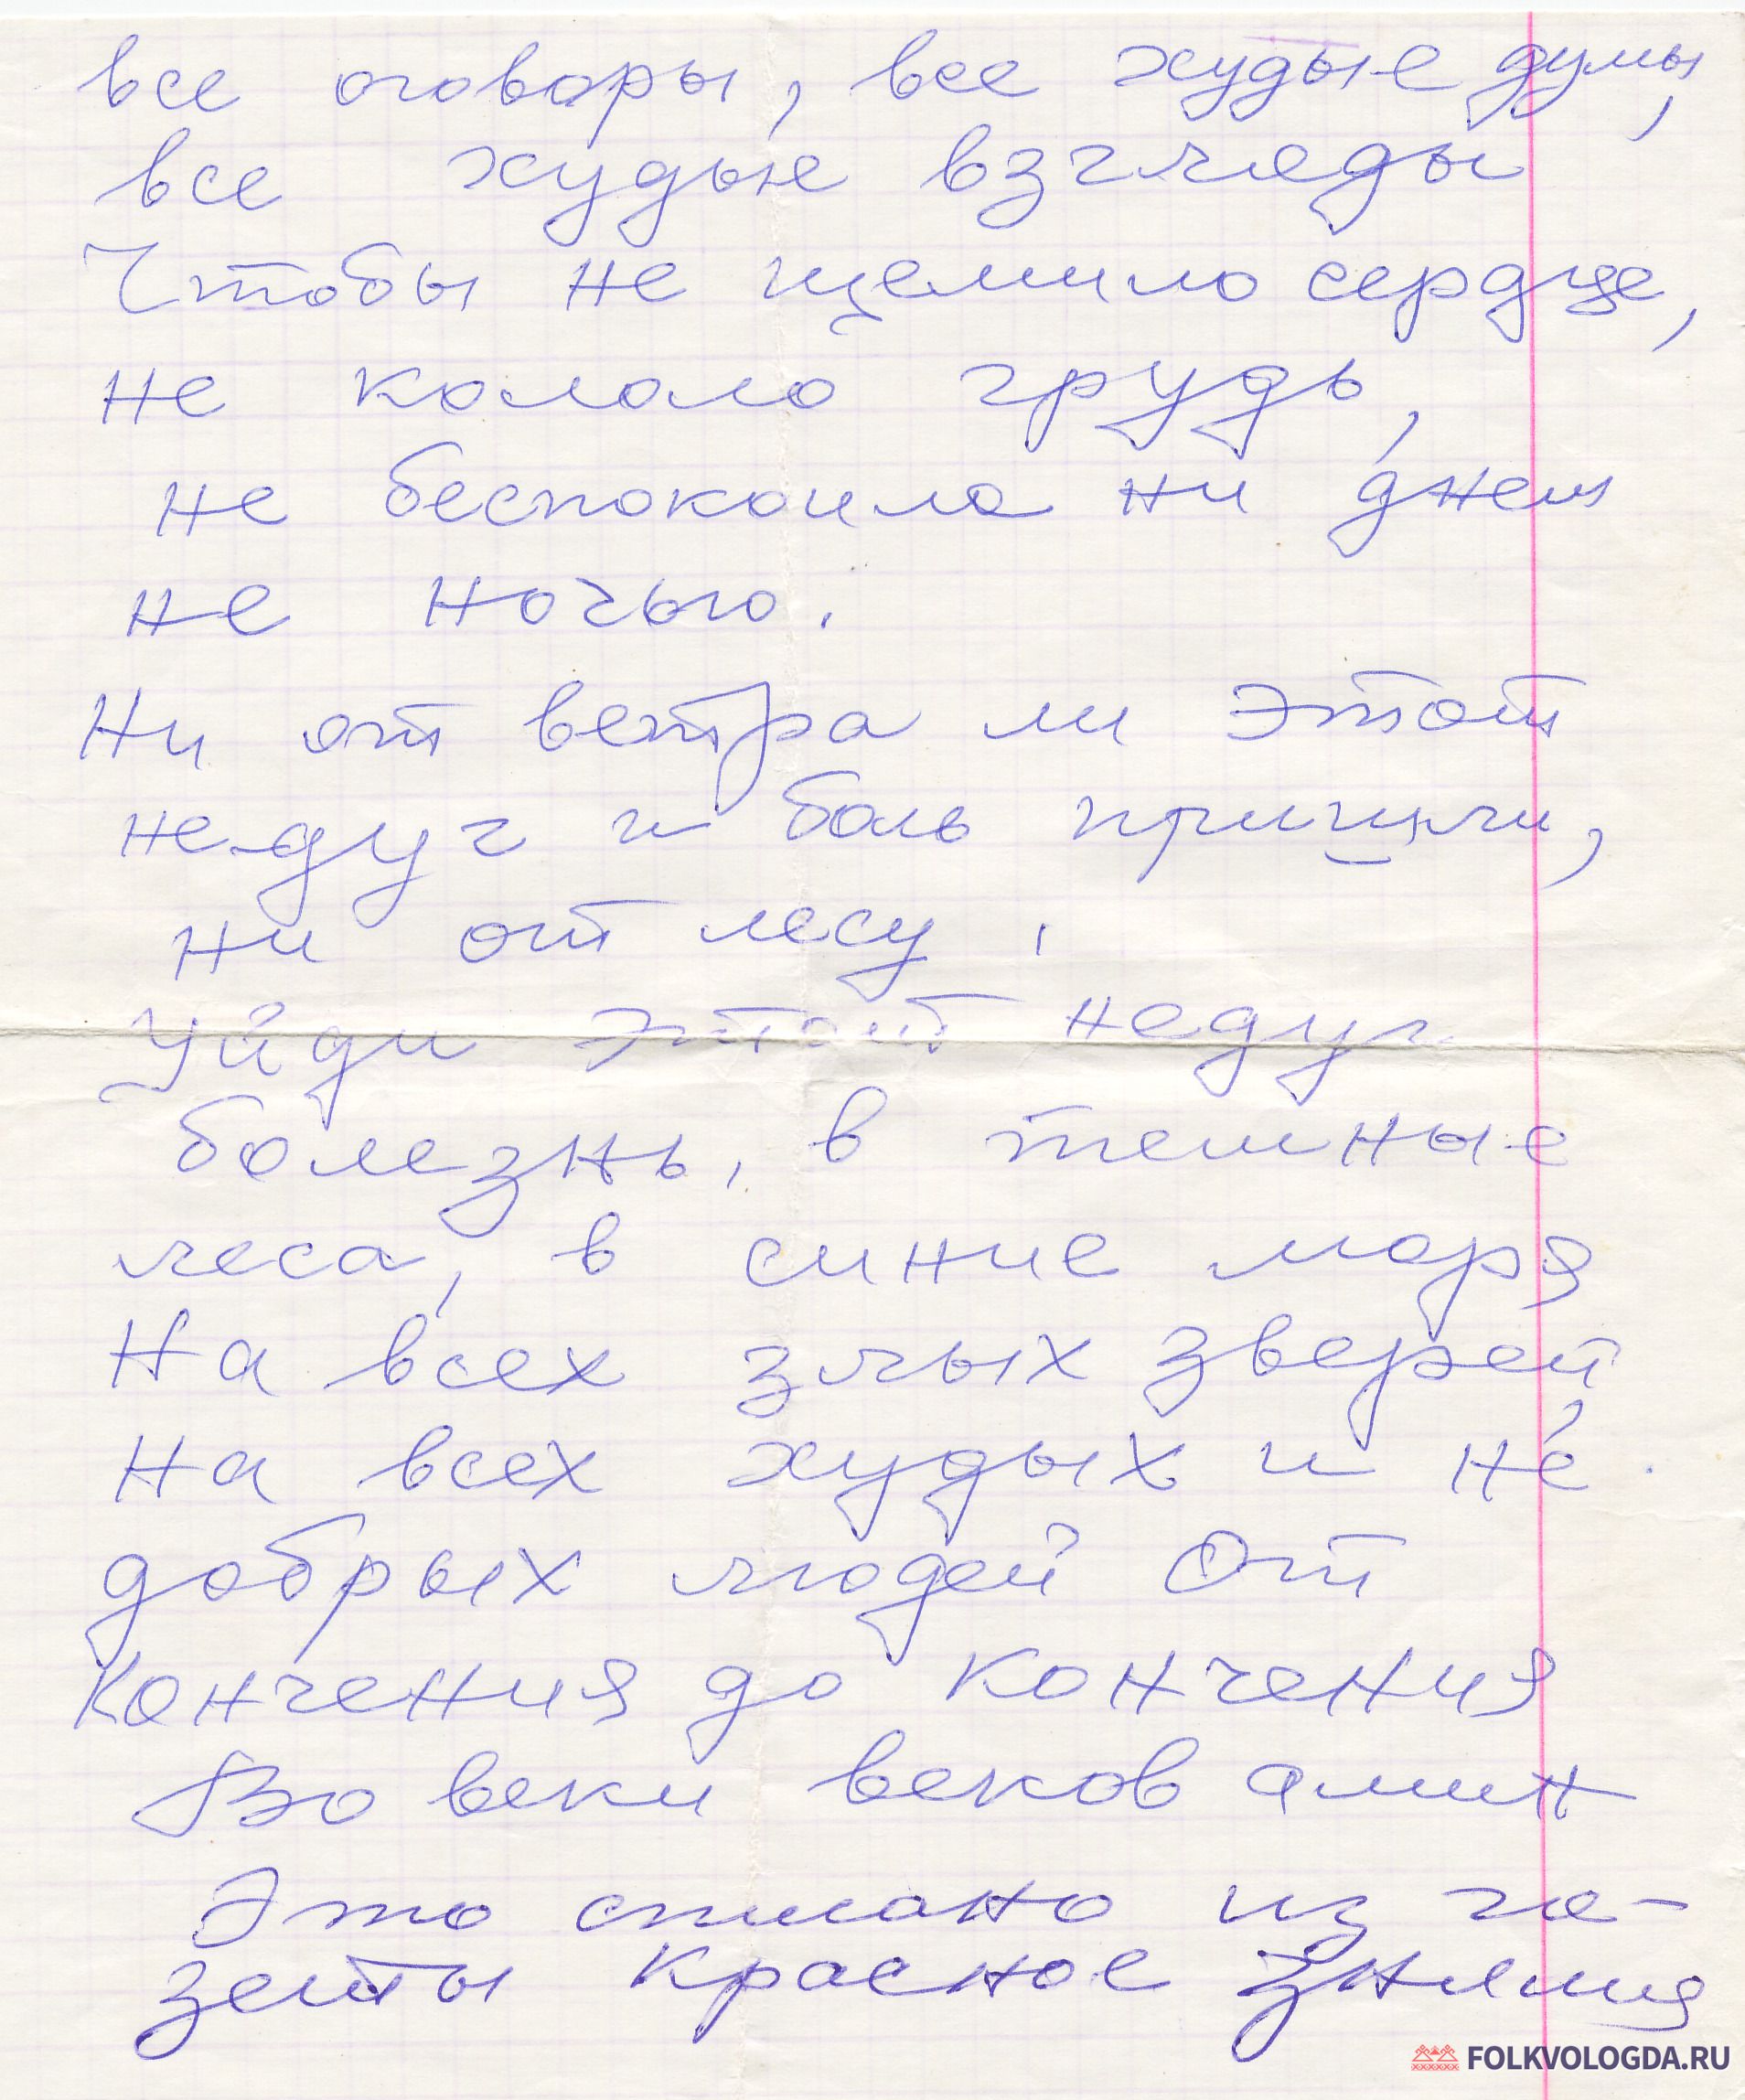 все оговоры, все худые думы,
все худые взгляды
Чтобы не щемило сердце,
не кололо грудь,
не беспокоило ни днем
не ночью.
Ни от ветра ли этот
недуг и боль пришли,
ни от лесу,
Уйди этот недуг
болезнь, в темные
леса, в синие моря
На всех злых зверей
На всех худых и не
добрых людей От
Кончения до кончения
Во веки веков аминь
Это списано из га-
зеты Красное Знамия
FOLKVOLOGDA.RU